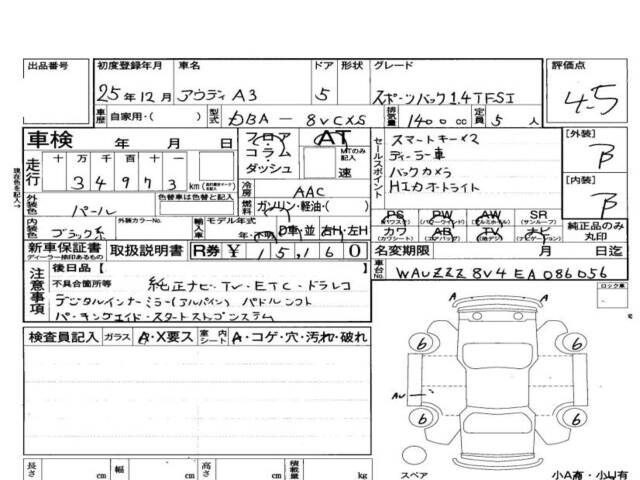 出品番号 初度登録年月 車名 ドア 形状 グレード 評価点
25年12月 アウディA3 5 スポーツバック1.4TFSI 4.5
車歴 自家用・( ) 型式 DBA-8VCXS 排気量 1400 cc 定員 5 人
車検 年 月 日 フロア コラム ダッシュ AT MTのみ記入 速
セールスポイント スマートキー×2
ディーラー車
バックカメラ
HIDオートライト
[外装] B
[内装] B
走行 十 万 千 百 十 一
34973 km
現在色を記入→
外装色 パール 色替車は色替と記入
冷房 AAC
燃料 ガソリン・軽油・( )
内装色 ブラック系 外装カラーNo. 輸入車 モデル年式 年・不明 D車・並 右H・左H
PS (パワステ) PW (パワーウインド) AW (アルミホイル) SR (サンルーフ)
カワ (カワシート) AB (エアバッグ) TV (地デジ) ナビ (ナビゲーション)
純正品のみ丸印
新車保証書 ディーラー捺印あるもの 取扱説明書 R券 ¥ 15,160 名変期限 月 日迄
車台No. WAUZZZ8V4EA086056
注意事項 後日品[ ]
不具合箇所等 純正ナビ・TV・ETC・ドラレコ
デジタルインナーミラー(アルパイン) パドルシフト
パーキングエイド・スタートストップシステム
ロック車
検査員記入 ガラス A・X要ス 室内シート A・コゲ・穴・汚れ・破れ
A A
6 6
AU
6 6
スペア 小A有・小U有
長さ cm 幅 cm 高さ cm 積載量 kg